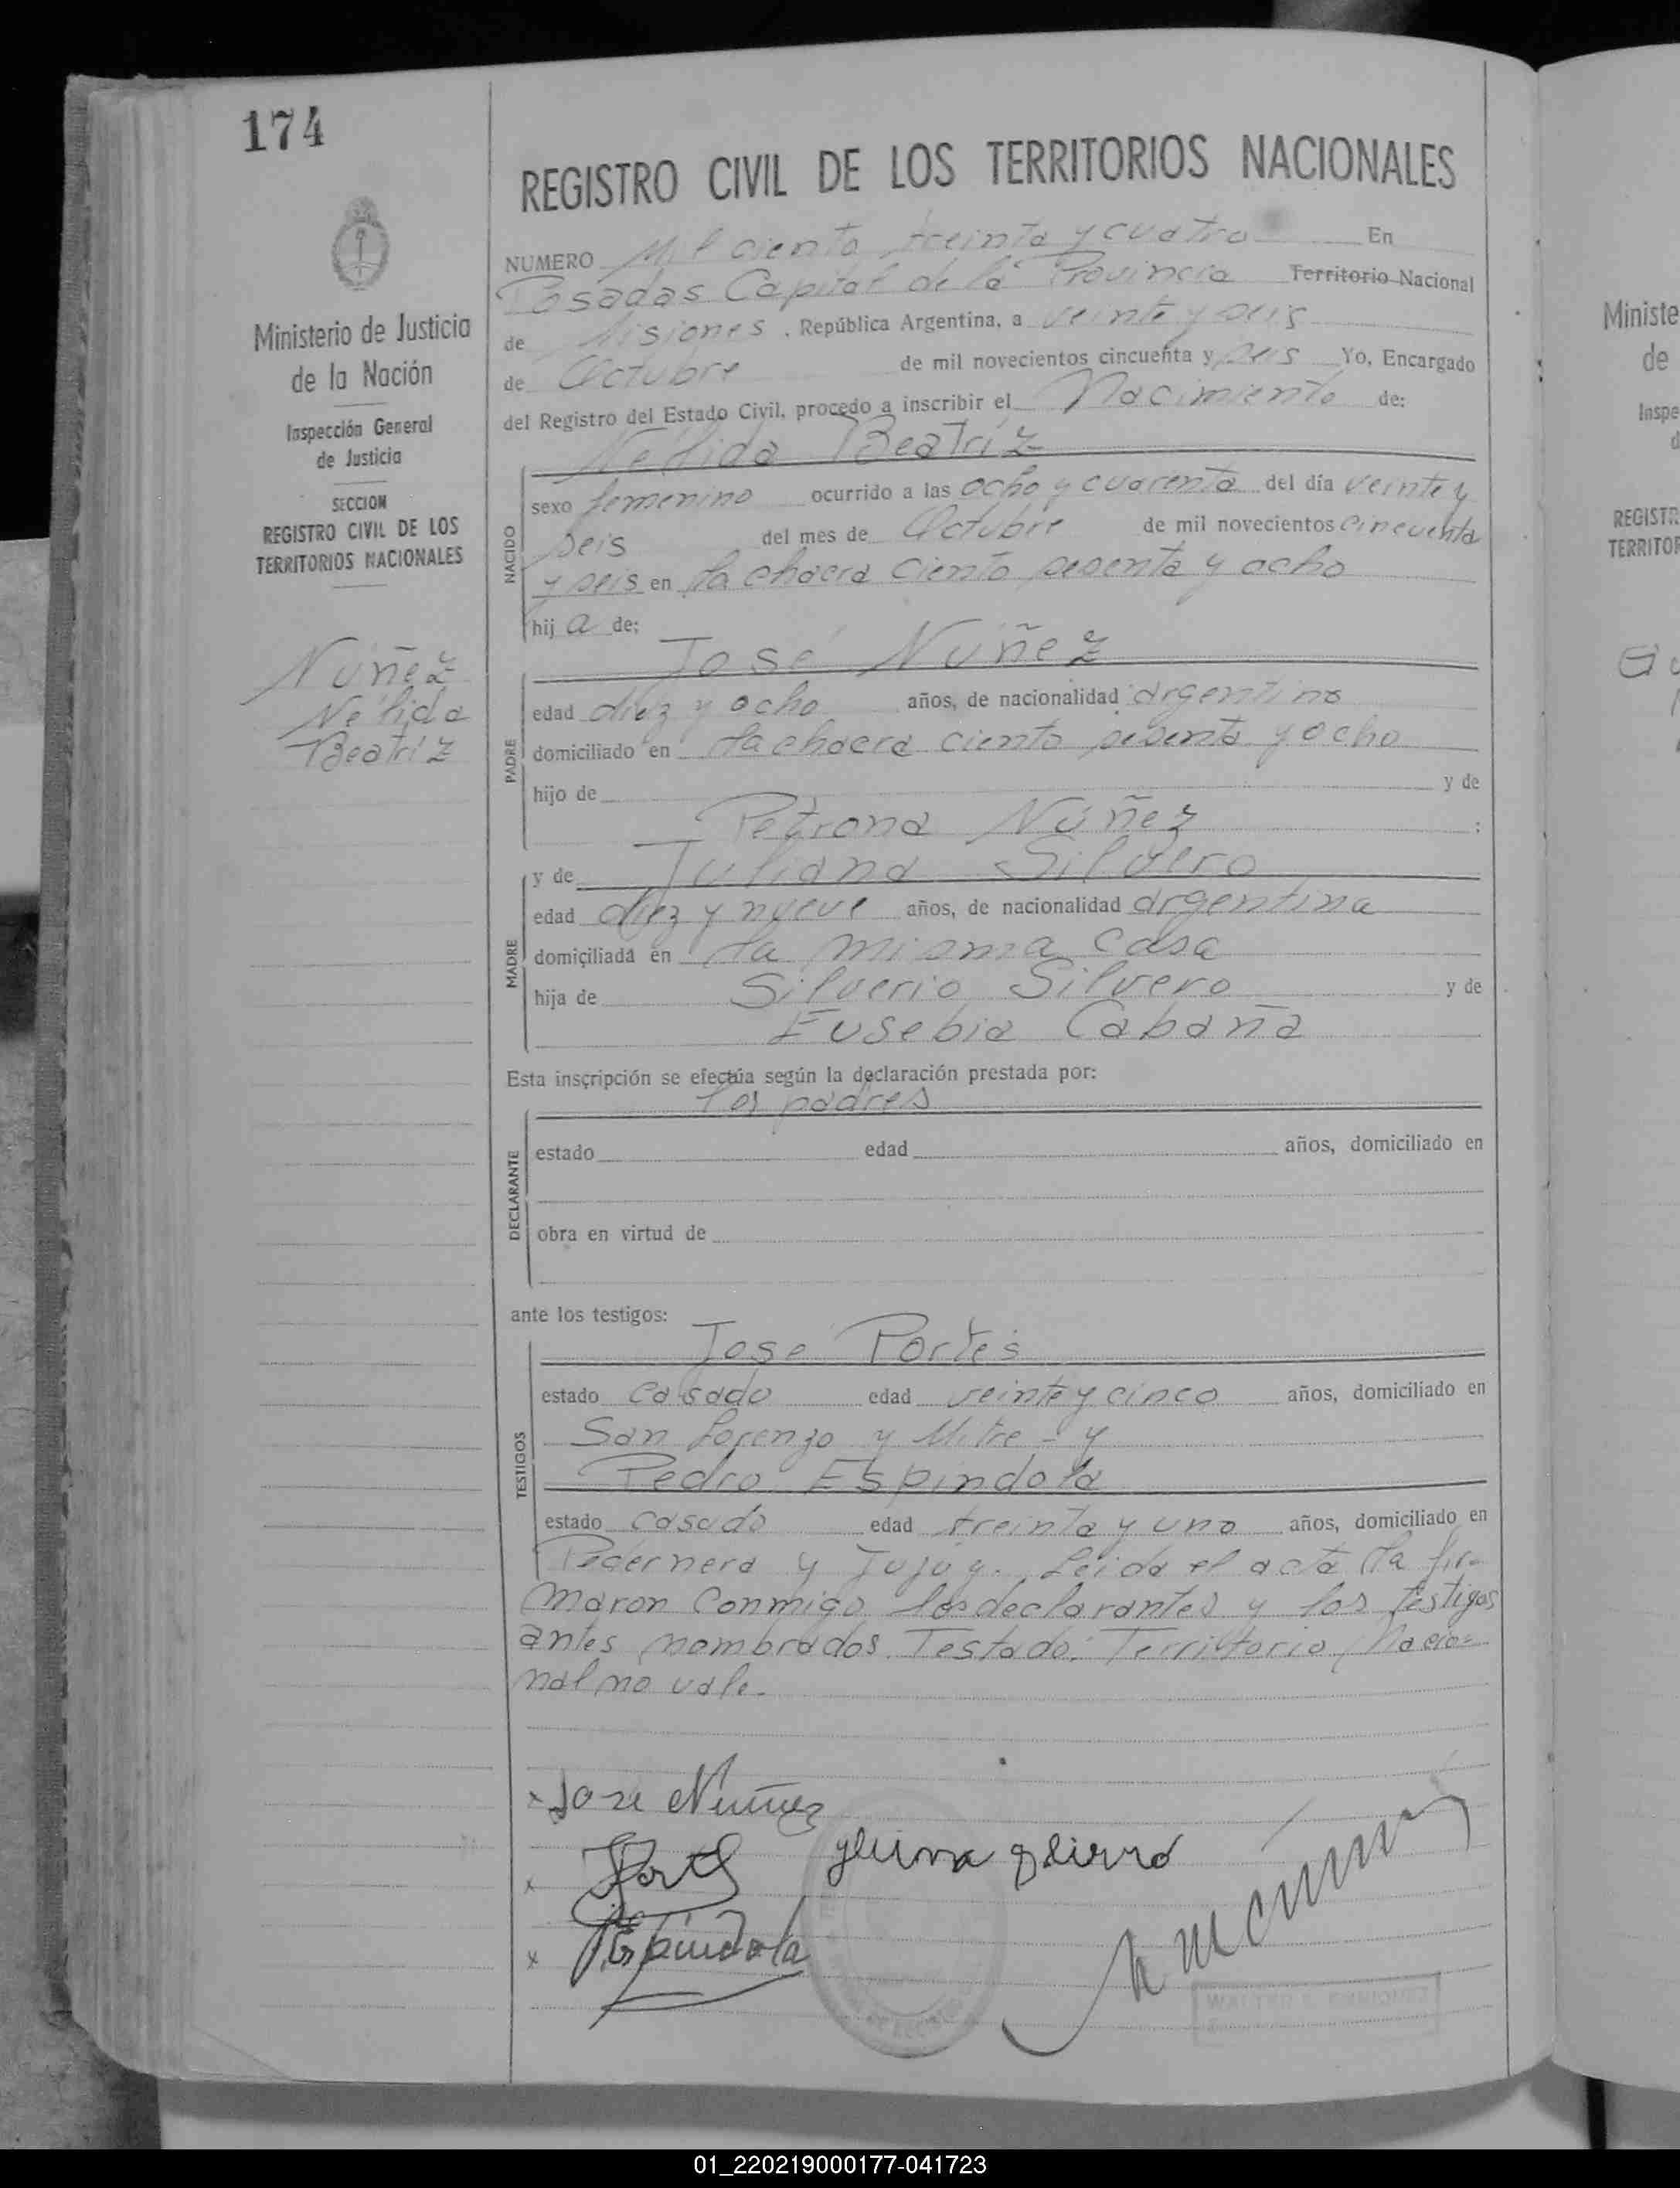 174
REGISTRO CIVIL DE LOS TERRITORIOS NACIONALES
NUMERO Mil ciento treinta y cuatro En
Posadas Capital de la Provincia Territorio Nacional
de Misiones, República Argentina, a veinte y seis
de Octubre de mil novecientos cincuenta y seis Yo, Encargado
del Registro del Estado Civil, procedo a inscribir el Nacimiento de:
Nélida Beatríz
NACIDO
sexo femenino ocurrido a las ocho y cuarenta del día veinte y
seis del mes de Octubre de mil novecientos cincuenta
y seis en la chacra ciento sesenta y ocho
hij a de:
José Núñez
PADRE
edad diez y ocho años, de nacionalidad argentino
domiciliado en la chacra ciento sesenta y ocho
hijo de y de
Petrona Núñez :
MADRE
y de Juliana Silvero
edad diez y nueve años, de nacionalidad argentina
domiciliada en la misma casa
hija de Silverio Silvero y de
Eusebia Cabaña
Esta inscripción se efectúa según la declaración prestada por:
los padres
DECLARANTE
estado edad años, domiciliado en
obra en virtud de
ante los testigos:
José Portes
TESTIGOS
estado casado edad veinte y cinco años, domiciliado en
San Lorenzo y Mitre - y
Pedro Espíndola
estado casado edad treinta y uno años, domiciliado en
Pedernera y Jujuy. Leida el acta la fir-
maron conmigo los declarantes y los testigos
antes nombrados. Testado: Territorio Nacio=
nal no vale.
x José Nuñez
x
x PEspíndola
Ministerio de Justicia
de la Nación
Inspección General
de Justicia
SECCION
REGISTRO CIVIL DE LOS
TERRITORIOS NACIONALES
Núñez
Nélida
Beatríz
Ministe
de
Inspe
d
REGISTR
TERRITOR
01_220219000177-041723